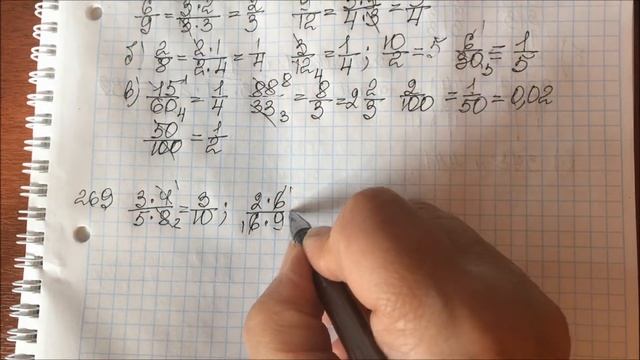 6/9 = 3·2/3·3 = 2/3 9/12 = 3·3/4·3 = 3/4
б) 2/8 = 2·1/2·4 = 1/4 3/12 4 = 1/4; 10/2 = 5 6 1/30 5 = 1/5
в) 15 1/60 4 = 1/4 88 8/33 3 = 8/3 = 2 2/3 2/100 = 1/50 = 0,02
50/100 = 1/2
269 3·4 1/5·8 2 = 3/10; 2·6 1/1 6·9